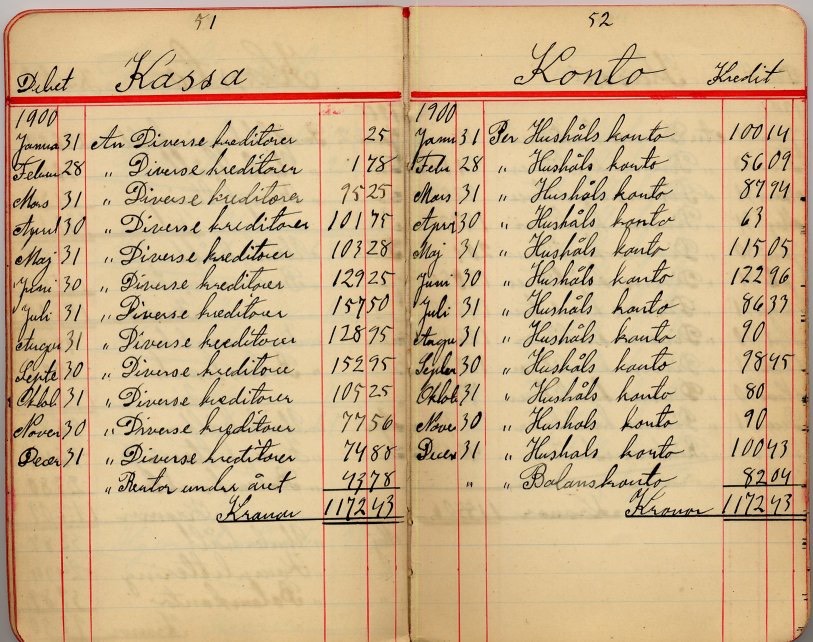 51
Debet Kassa
1900
Janua 31 An Diverse kreditorer 25
Febru 28 " Diverse kreditorer 1 78
Mars 31 " Diverse kreditorer 95 25
April 30 " Diverse kreditorer 101 75
Maj 31 " Diverse kreditorer 103 28
Juni 30 " Diverse kreditorer 129 25
Juli 31 " Diverse kreditorer 157 50
Augu 31 " Diverse kreditorer 128 95
Septe 30 " Diverse kreditorer 152 95
Oktob 31 " Diverse kreditorer 105 25
Nover 30 " Diverse kreditorer 77 56
Decer 31 " Diverse kreditorer 74 88
" Rentor under året 43 78
Kronor 1172 43
52
Konto Kredit
1900
Janu 31 Per Hushåls konto 100 14
Febr 28 " Hushåls konto 56 09
Mars 31 " Hushåls konto 87 94
Apri 30 " Hushåls konto 63
Maj 31 " Hushåls konto 115 05
Juni 30 " Hushåls konto 122 96
Juli 31 " Hushåls konto 86 33
Augu 31 " Hushåls konto 90
Septer 30 " Hushåls konto 98 45
Oktob 31 " Hushåls konto 80
Nove 30 " Hushals konto 90
Decer 31 " Hushals konto 100 43
" " Balanskonto 82 04
Kronor 1172 43